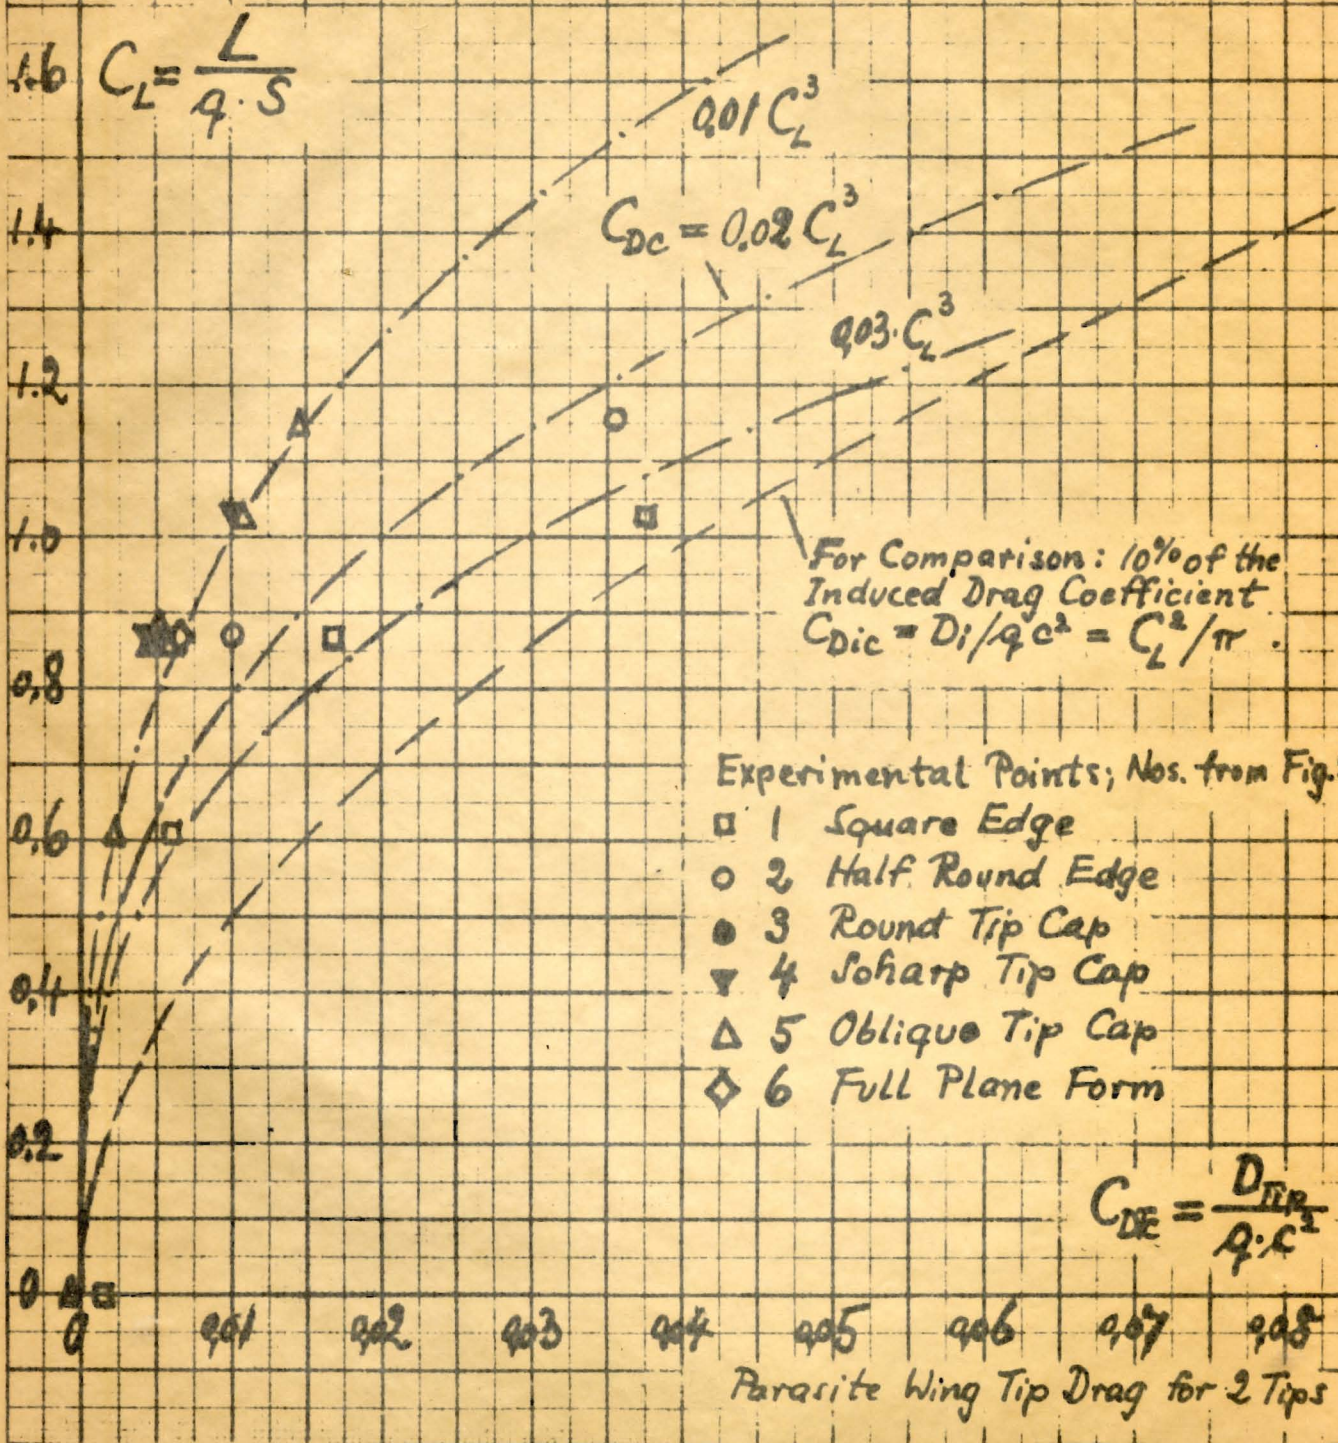 C_L = L / q · S
1.6
0,01 C_L^3
1.4
C_DC = 0.02 C_L^3
0,03 · C_L^3
1.2
1.0
For Comparison: 10% of the
Induced Drag Coefficient
C_Dic = Di/qc² = C_L²/π .
0,8
Experimental Points; Nos. from Fig.
0,6
1 Square Edge
2 Half Round Edge
3 Round Tip Cap
4 Soharp Tip Cap
0,4
5 Oblique Tip Cap
6 Full Plane Form
0.2
= D_Tip / q · c²
0
0 0,01 0,02 0,03 0,04 0,05 0,06 0,07 0,08
Parasite Wing Tip Drag for 2 Tips